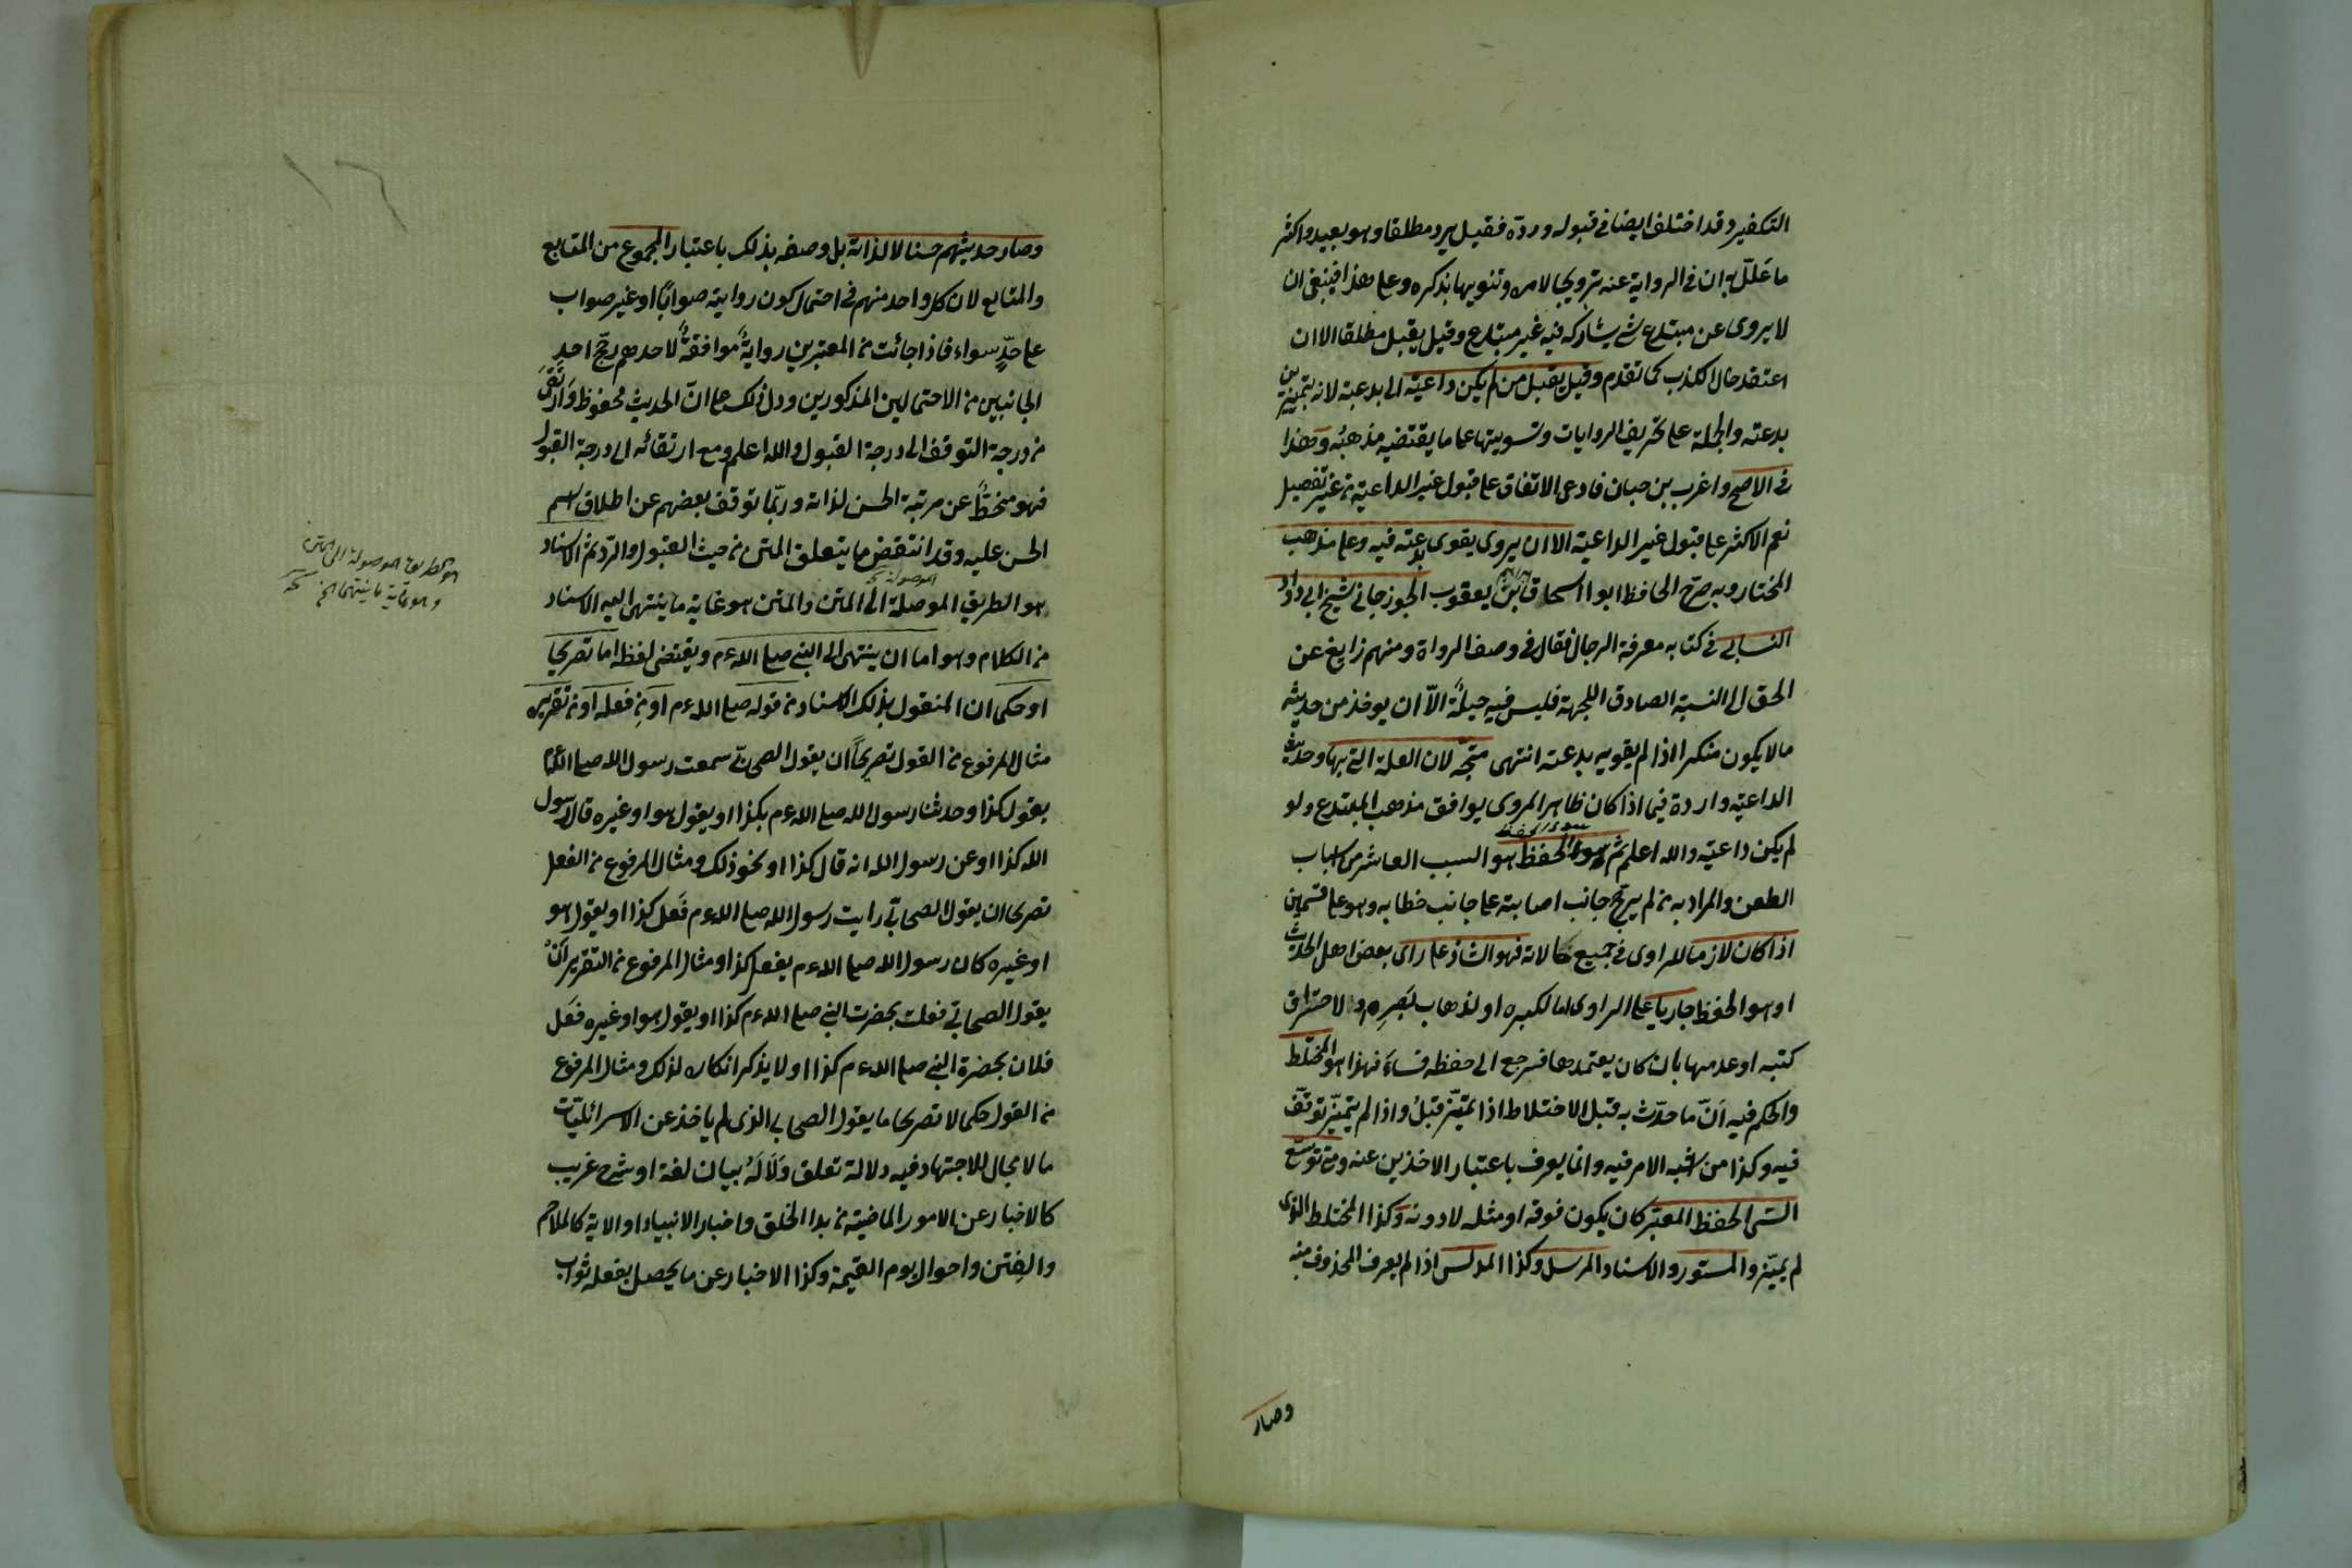 التكفير وقد اختلف ايضا في قبوله ورده فقيل يرد مطلقا وهو بعيد واكثر
ما علّل به ان في الرواية عنه ترويجا لامره وتنويها بذكره وعلى هذا فينبغي ان
لا يروى عن مبتدع شئ يشاركه فيه غير مبتدع وقيل يقبل مطلقا الا ان
اعتقد حل الكذب كما تقدم وقيل يقبل من لم يكن داعية الى بدعته لان تزيين
بدعته والجملة على تحريف الروايات وتسويتها على ما يقتضيه مذهبه وهذا
في الاصح واغرب بن حبان فادعى الاتفاق على قبول غير الداعية من غير تفصيل
نعم الاكثر على قبول غير الداعية الا ان يروى يقوى بدعته فيه وعلى مذهب
المختار وبه صرح الحافظ ابو اسحاق بن يعقوب الجوزجاني شيخ ابي داود
النسايى في كتابه معرفة الرجال فقال في وصف الرواة ومنهم زايغ عن
الحق اى النسبة الصادق اللهجة فليس فيه حيلةً الّا ان يوخذ من حديثه
ما لا يكون منكرا اذا لم يقويه بدعته انتهى متجه لان العلة التي بها وحديث
الداعية واردة فيما اذا كان ظاهر المروى يوافق مذهب المبتدع ولو
لم يكن داعية والله اعلم ثم سوء الحفظ هو السبب العاشر من اسباب
سوء الحفظ
الطعن والمراد به من لم يرجح جانب اصابته على جانب خطابه وهو على قسمين
اذا كان لازما للراوى في جميع حالاته فهو الشاذ على راى بعض اهل الحديث
او سوء الحفظ جاريا على الراوى اما لكبره او لذهاب بَصَرِه او لاحتراق
كتبه او عدمها بان كان يعتمدها فرجع الى حفظه فساءَ فهذا هو المختلط
والحكم فيه انّ ما حدّث به قبل الاختلاط اذا تميّز قبلُ واذا لم يتميّز توقّف
فيه وكذا من اشبه الامر فيه وانما يعرف باعتبار الاخذين عنه ومتى توبع
السّى الحفظ المعتبر كان يكون فوقه او مثله لا دونه وكذا المختلط الذى
لم يميّز والمستور والاسناد المرسل وكذا المدلس اذا لم يعرف المحذوف منه
وصار
وصار حديثهم حسنا لا لذاته بل وصفه بذلك باعتبار المجموع من المتابع
والمتابع لان كل واحد منهم في احتمال كون روايته صوابًا او غير صواب
على حدٍّ سواء فاذا جائت من المعتبرين روايةً موافقةً لاحدهم رجّح احد
الجانبين من الاحتمالين المذكورين ودل ذلك على انّ الحديث محفوظ وَارتَقَى
من درجة التوقف الى درجة القبول والله اعلم ومع ارتقائه الى درجة القبول
فهو منحطٌّ عن مرتبة الحسن لذاته وربّما توقف بعضهم عن اطلاق اسم
الحسن عليه وقد انتقض ما يتعلق المتن من حيث القبول والرد ثم الاسناد
الموصولة نخـ
هو الطريق الموصلة الى المتن والمتن هو غاية ما ينتهى اليه الاسناد
هو الطريقة الموصولة الى المتن
وهو غاية ما ينتهى الخ نخـ
من الكلام وهو اما ان ينتهى الى النبي صلى الله ءم ويقتضى لفظه اما تصريحا
او حكما ان المنقول بذلك الاسناد من قوله صلى الله ءم او من فعله او من تقريره
مثال المرفوع من القول تصريحاً ان يقول الصحابّي سمعت رسول الله صلى الله ءم
يقول كذا وحدثنا رسول الله صلى الله ءم بكذا او يقول هو او غيره قال رسول
الله كذا او عن رسول الله انه قال كذا او نحو ذلك ومثال المرفوع من الفعل
تصريحا ان يقول الصحابّي رايت رسول الله صلى الله ءم فَعل كذا او يقول هو
او غيره كان رسول الله صلى الله ءم يفعل كذا ومثال المرفوع من التقرير اَنْ
يقول الصحابّي فعلت بحضرت النبي صلى الله ءم كذا او يقول هو او غيره فعَل
فلان بحضرة النبي صلى الله ءم كذا او لا يذكر انكاره لذلك ومثال المرفوع
من القول حكما لا تصريحا ما يقول الصحابي الذى لم ياخذ عن الاسرائليّات
ما لا مجال للاجتهاد فيه دلالة تعلق وَلَا لَهُ بيان لغة او شرح غريب
كالاخبار عن الامور الماضية من بدا الخلق واخبار الانبياء او الاية كالملاحم
والفِتن واحوال يوم القيمة وكذا الاخبار عن ما يحصل بفعله ثواب